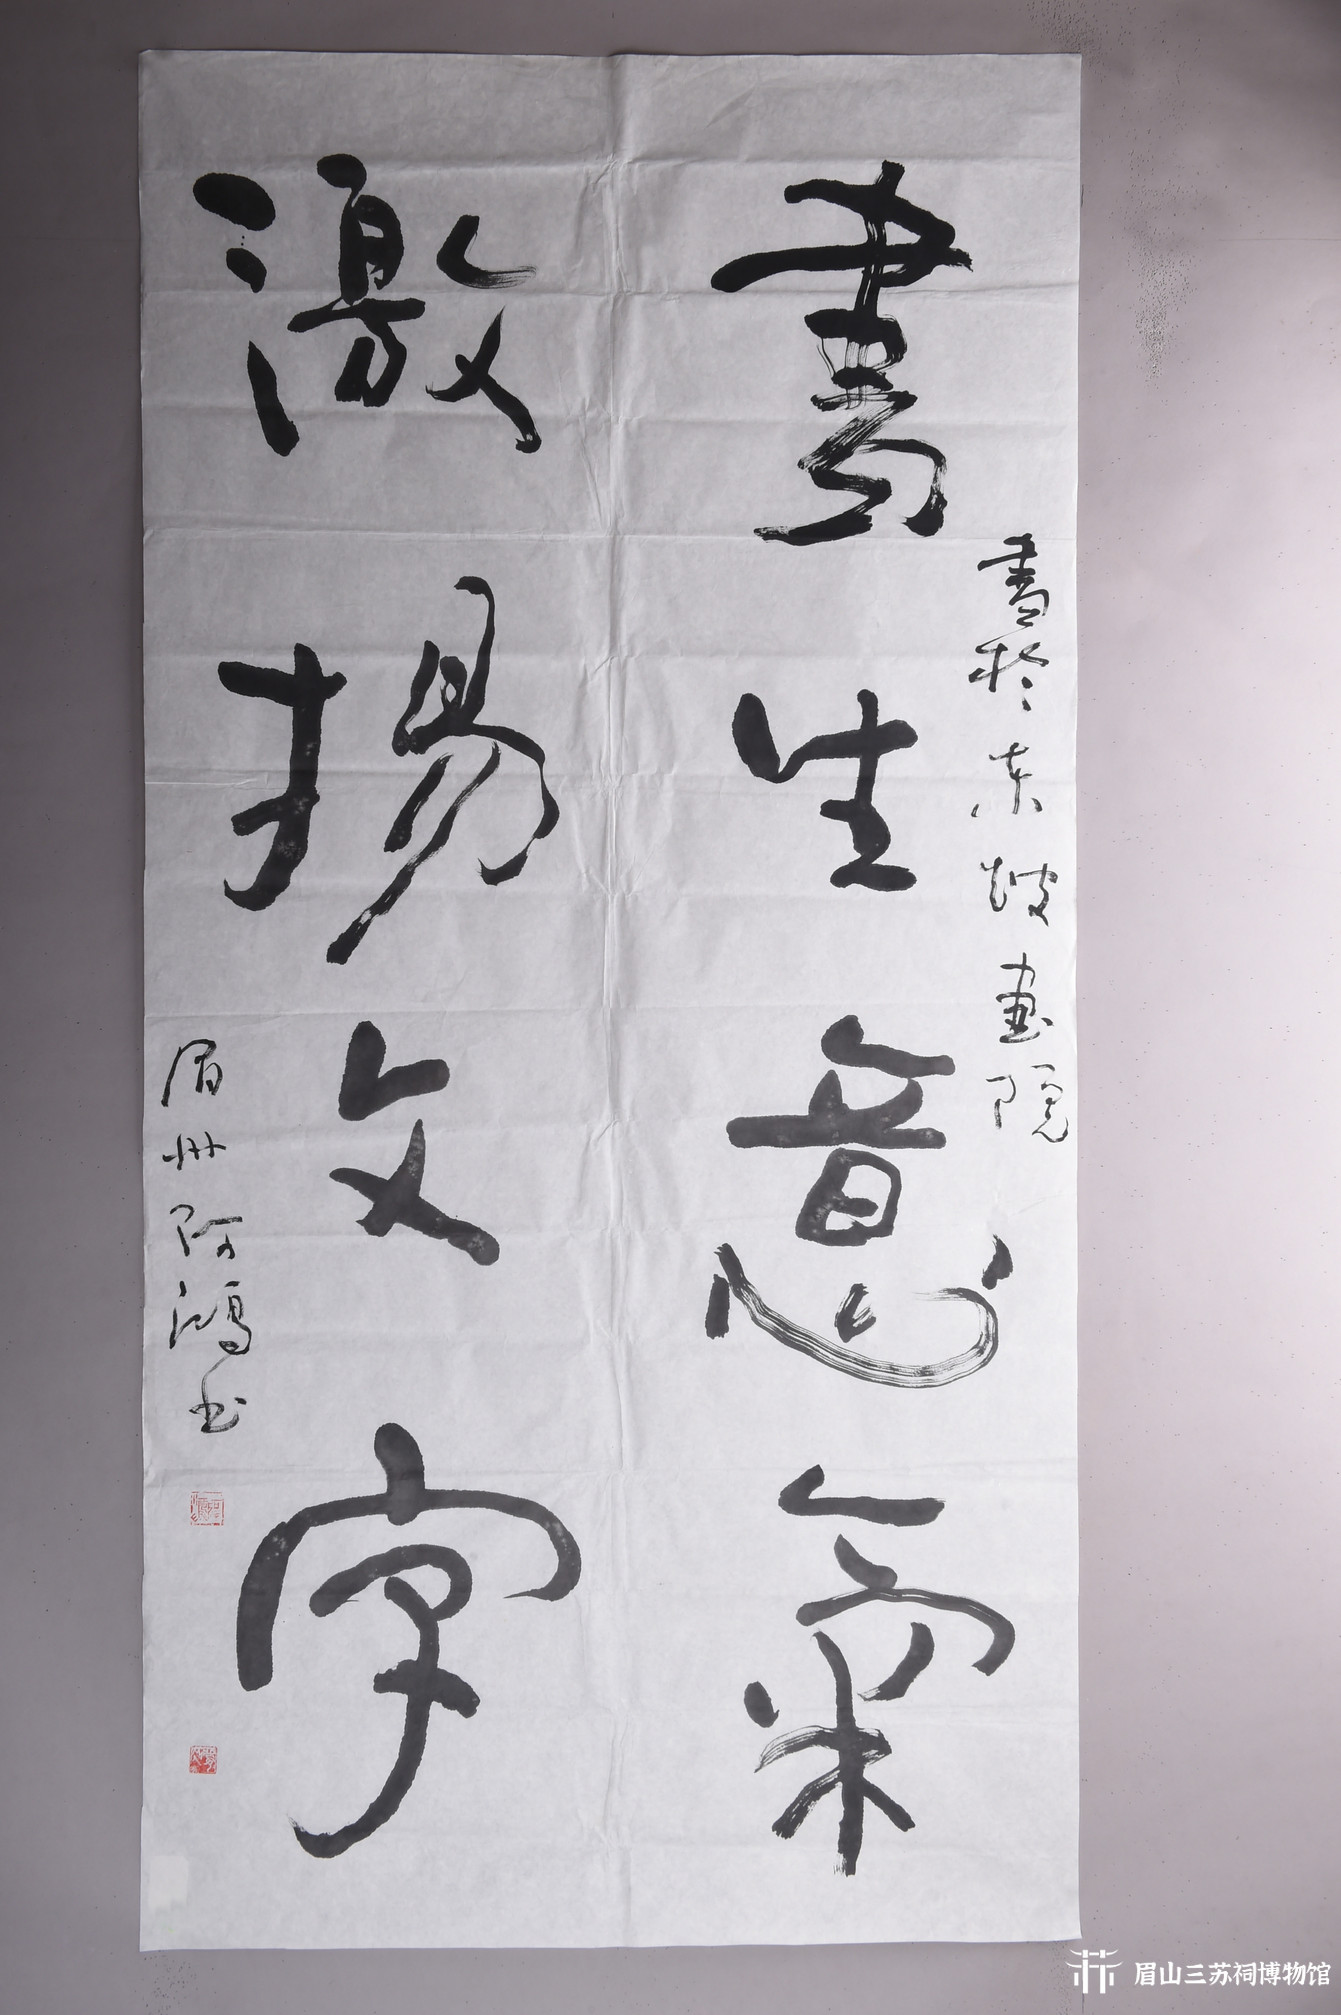 書生意氣
書於东坡画院
激揚文字
眉州阿鴻书
眉山三苏祠博物馆